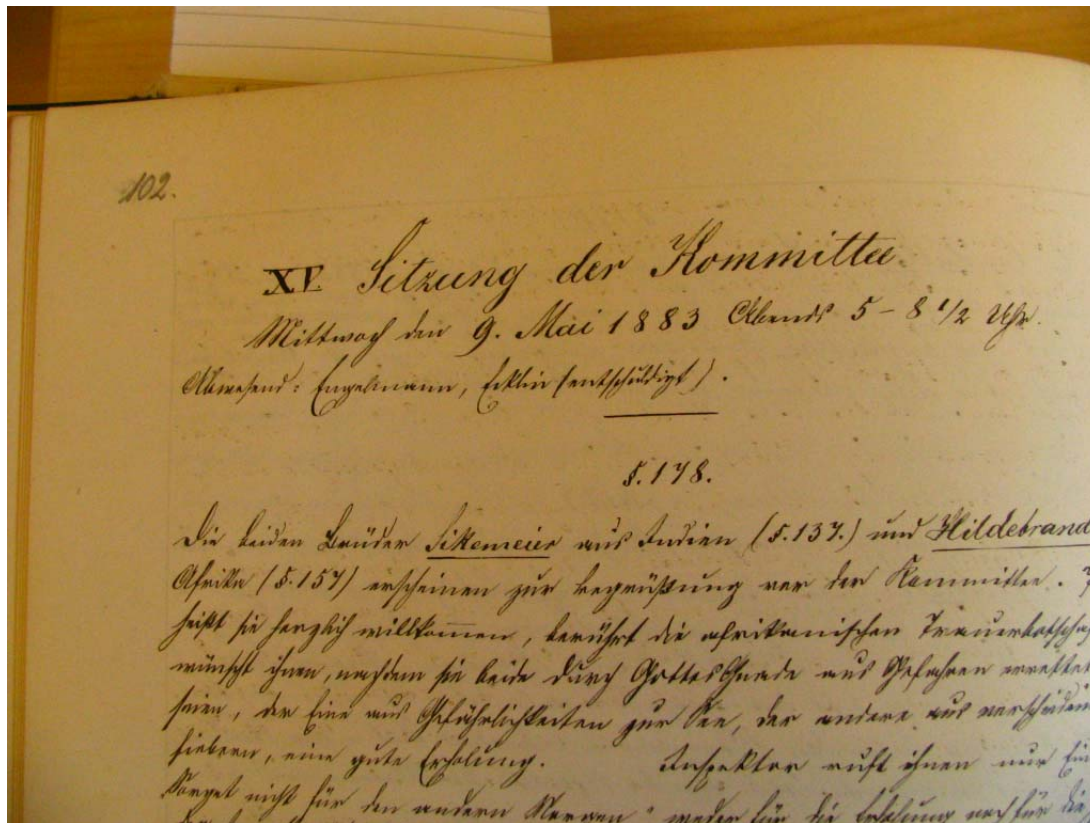 102.
XV. Sitzung der Kommittee.
Mittwoch den 9. Mai 1883 Abends 5 - 8 1/2 Uhr.
Abwesend: Engelmann, Ecklin (entschuldigt).
§. 178.
Die beiden Brüder Sikemeier aus Indien (§. 137.) und Hildebrand
Afrika (§. 157) erscheinen zur Begrüßung vor der Kommittee.
heißt sie herzlich willkommen, berührt die afrikanischen Trauerbotschaf
wünscht ihnen, nachdem sie beide durch Gottes Gnade aus Gefahren errettet
seien, der Eine aus Gefährlichkeiten zur See, der andere aus verschieden
Fiebern, eine gute Erholung. Inspektor ruft ihnen nur Ein
Sorget nicht für den andern Morgen" weder für die Erholung noch für die